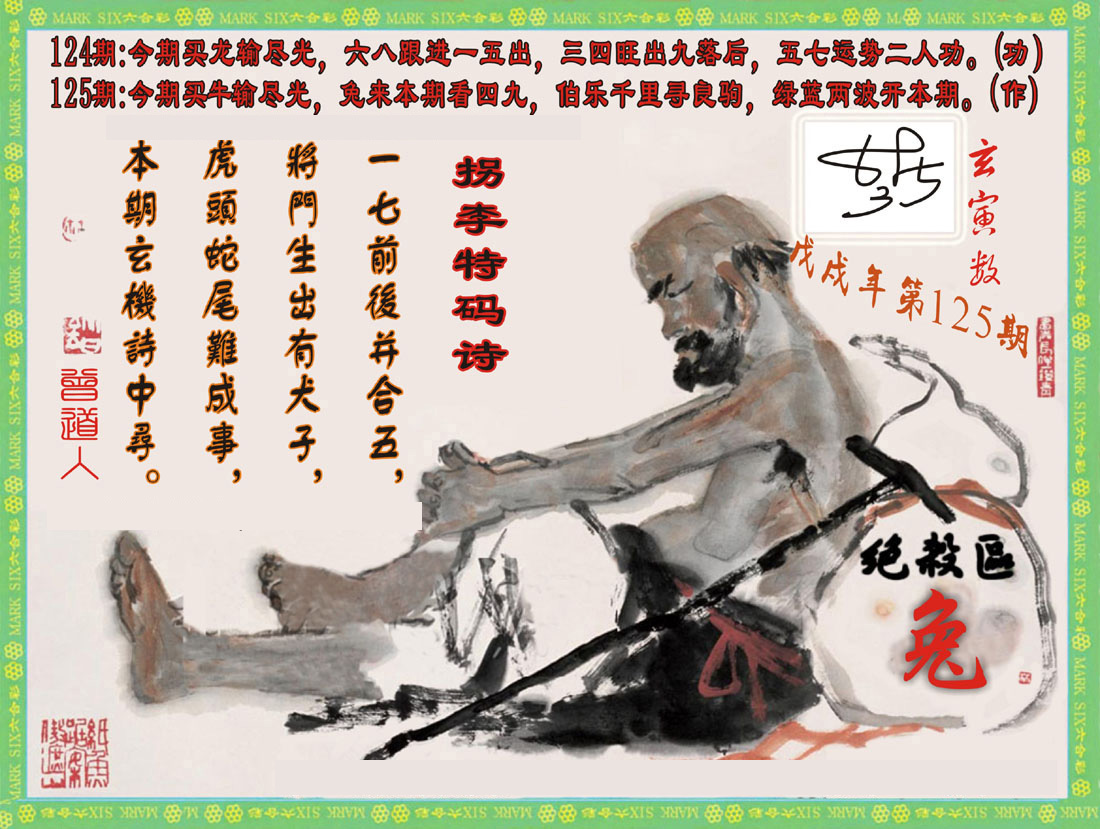 MARK SIX六合彩 MARK SIX六合彩 MARK SIX六合彩 MARK SIX六合彩 MARK SIX六合彩 MARK SIX六合彩
124期:今期买龙输尽光，六八跟进一五出，三四旺出九落后，五七运势二人功。(功)
125期:今期买牛输尽光，兔来本期看四九，伯乐千里寻良驹，绿蓝两波开本期。(作)
玄寅数
戊戌年第125期
拐李特码诗
一七前後并合五，
將門生出有犬子，
虎頭蛇尾難成事，
本期玄機詩中尋。
曾道人
绝殺區
兔